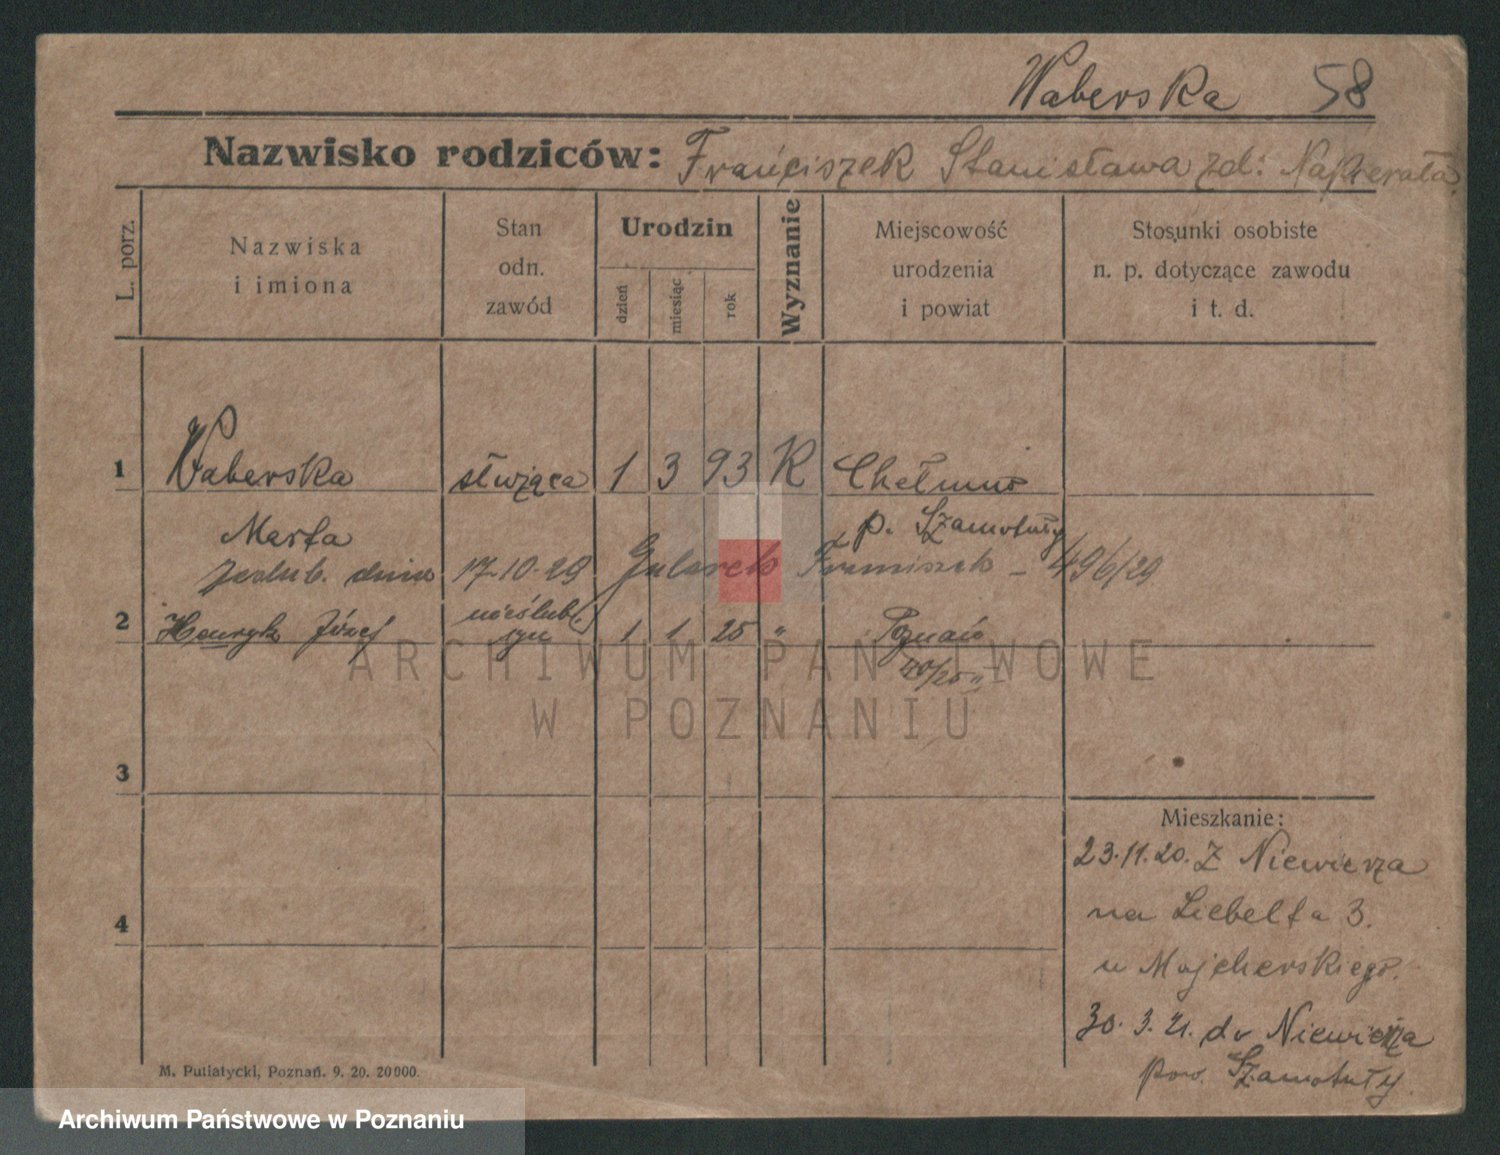 Waberska 58
Nazwisko rodziców: Franciszek Stanisława zd: Napierała
L. porz.
Nazwiska
i imiona
Stan
odn.
zawód
Urodzin
dzień
miesiąc
rok
Wyznanie
Miejscowość
urodzenia
i powiat
Stosunki osobiste
n. p. dotyczące zawodu
i t. d.
1 Waberska służąca 1 3 93 K Chełmno
Marta p. Szamotuły
dnia 17.10.29 Franciszek - 496/29
2 Henryk Józef nieślub. syn 1 1 25 " Poznań
40/25
3
4
Mieszkanie:
23.11.20. Z Niewierza
na Liebelta 3.
u Majcherskiego.
30. 3. 21. do Niewierza
pow. Szamotuły.
M. Putiatycki, Poznań. 9. 20. 20000.
ARCHIWUM PAŃSTWOWE
W POZNANIU
Archiwum Państwowe w Poznaniu